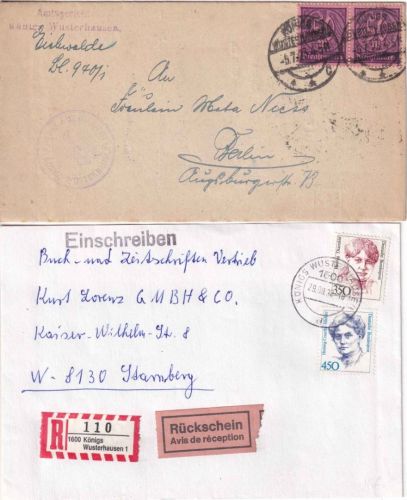 Amtsgericht
Königs Wusterhausen,
Eichwalde
Bl. 940/1
An
Fräulein Meta
Berlin
Augsburgerstr. 13
Einschreiben
Buch- und Zeitschriften Vertrieb
Kurt Lorenz GMBH & CO.
Kaiser-Wilhelm-St. 8
W - 8130 Starnberg
KÖNIGS WUST
1600
350
450
R
110
1600 Königs
Wusterhausen 1
Rückschein
Avis de réception